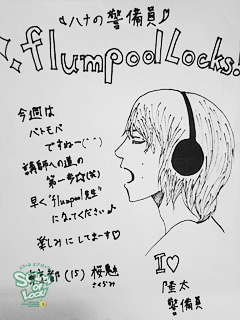 ハナの警備員
flumpool Locks!
今週は
バトモバ
ですねー(^^)
講師への道の
第一歩☆(笑)
早く"flumpool先生"
になってください♪
楽しみにしてまーす♡
東京都(15) 桜魅
さくらみ
I♡
隆太
警備員
SCHOOL OF LOCK!